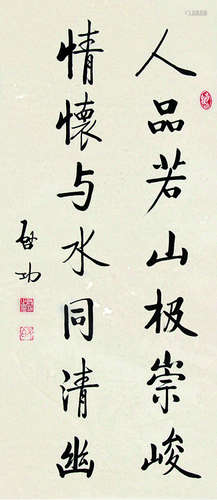 人品若山极崇峻
情怀与水同清幽
启功